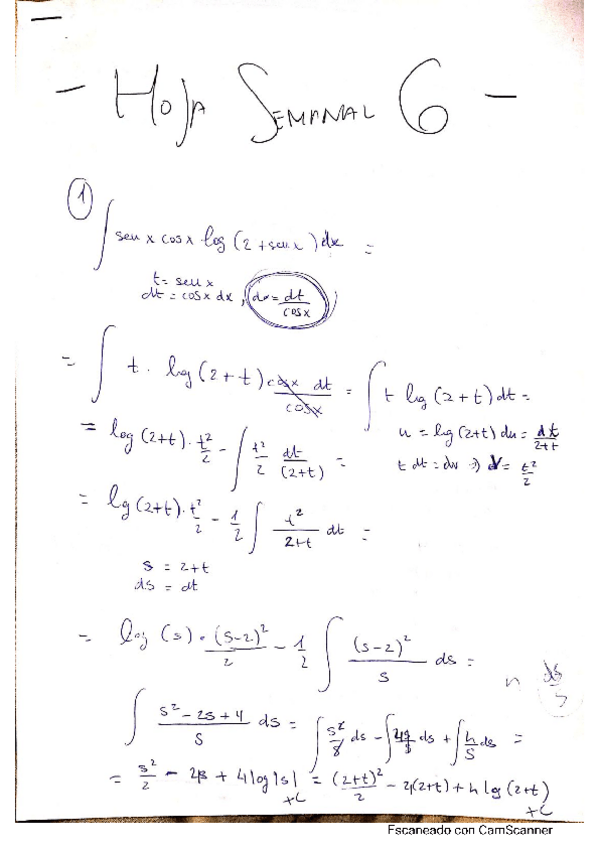 - HOJA SEMANAL 6 -
①
∫ sen x cos x log (2 + sen x) dx =
t = sen x
dt = cos x dx, dx = dt/cos x
= ∫ t · log (2 + t) cos x dt/cos x = ∫ t log (2 + t) dt =
u = log (2+t) du = dt/2+t
t dt = dv => v = t²/2
= log (2+t) · t²/2 - ∫ t²/2 dt/(2+t) =
= log (2+t) · t²/2 - 1/2 ∫ t²/2+t dt =
s = 2+t
ds = dt
= log (s) · (s-2)²/2 - 1/2 ∫ (s-2)²/s ds =
∫ s² - 2s + 4/s ds = ∫ s²/s ds - ∫ 4s/s ds + ∫ 4/s ds =
= s²/2 - 4s + 4 log |s| + C = (2+t)²/2 - 4(2+t) + 4 log (2+t) + C
Escaneado con CamScanner